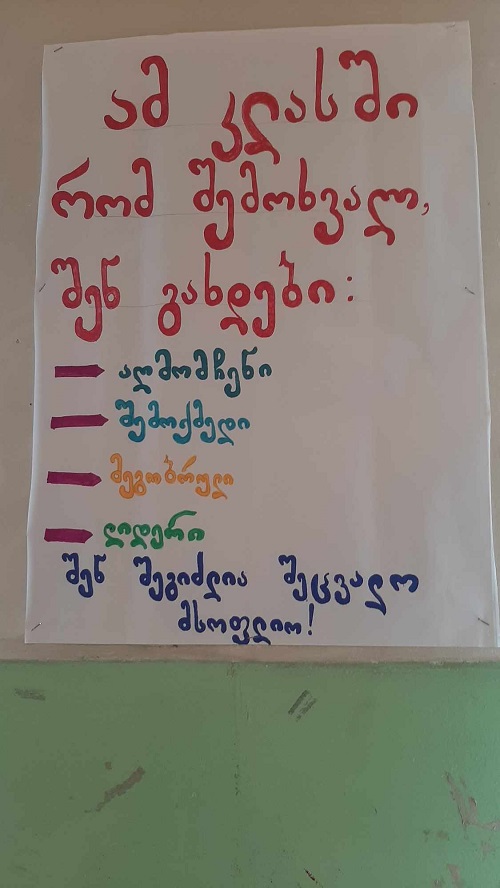 ამ კლასში
რომ შემოხვალ,
შენ გახდები:
აღმომჩენი
შემოქმედი
მეგობრული
ლიდერი
შენ შეგიძლია შეცვალო
მსოფლიო!